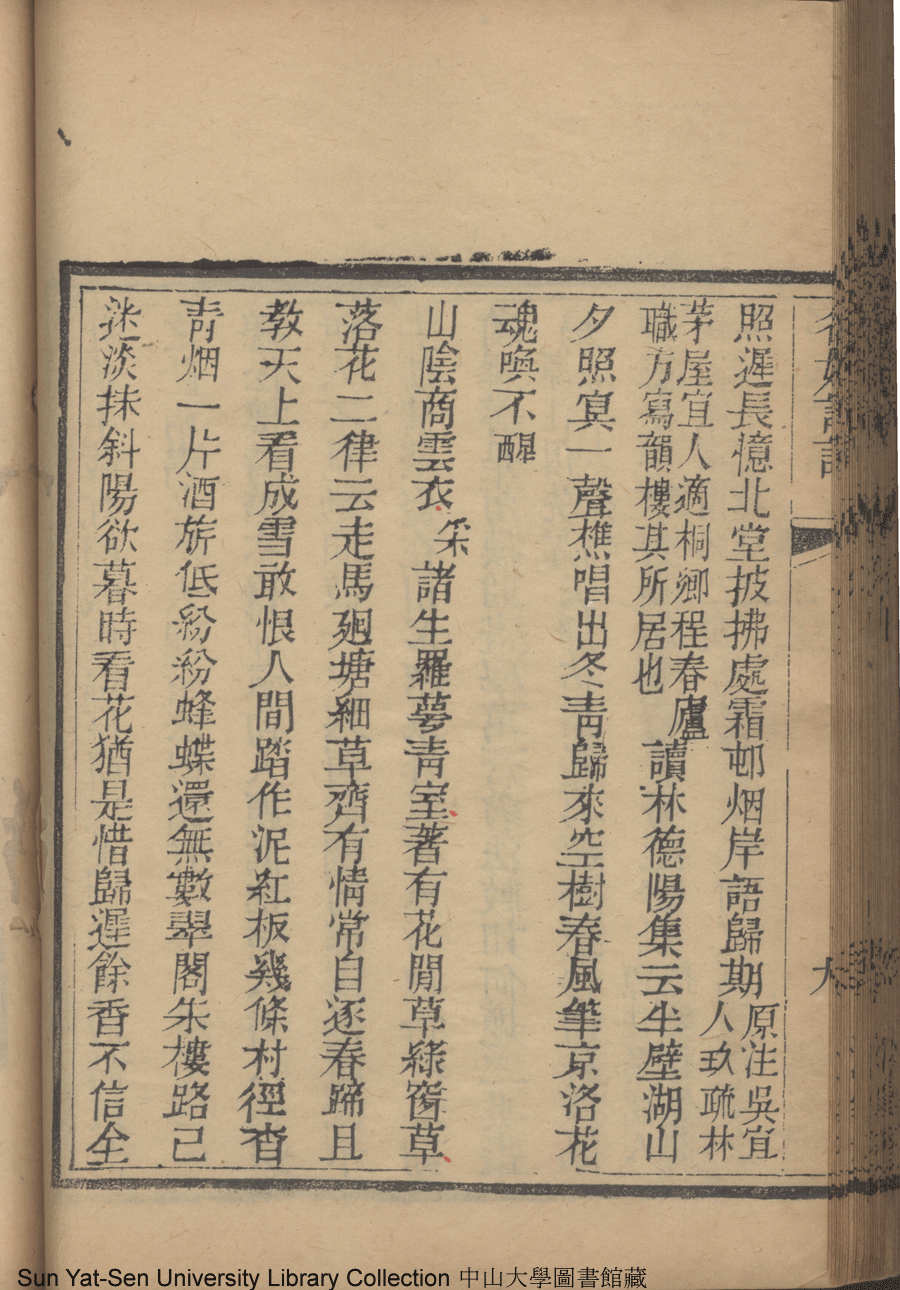 照遲長憶北堂披拂處霜邨烟岸語歸期原注吳宜人玖疏林
茅屋宜人適桐鄉程春廬職方寫韻樓其所居也讀林德陽集云半壁湖山
夕照寘一聲樵唱出冬青歸來空樹春風筆京洛花
魂喚不醒
山陰商雲衣采諸生羅夢青室著有花閒草綠窗草
落花二律云走馬廻塘細草齊有情常自逐春蹄且
教天上看成雪敢恨人間踏作泥紅板幾條村徑杳
青烟一片酒旂低紛紛蜂蝶還無數翠閣朱樓路已
迷淡抹斜陽欲暮時看花猶是惜歸遲餘香不信全
Sun Yat-Sen University Library Collection 中山大學圖書館藏